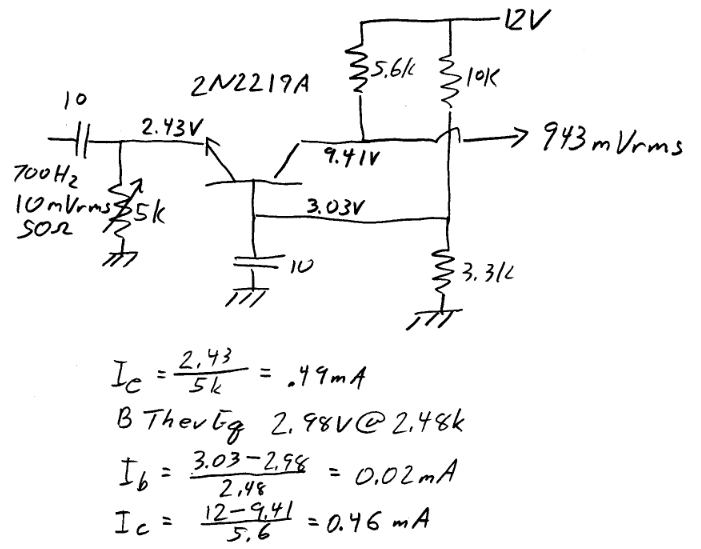 12V
5.6k
10K
2N2219A
10
2.43V
9.41V
943mVrms
700Hz
10mVrms
50Ω
5k
3.03V
10
3.3k
Ie = 2.43 / 5k = .49mA
B Thev Eq 2.98V @ 2.48k
Ib = 3.03-2.98 / 2.48 = 0.02mA
Ic = 12-9.41 / 5.6 = 0.46 mA